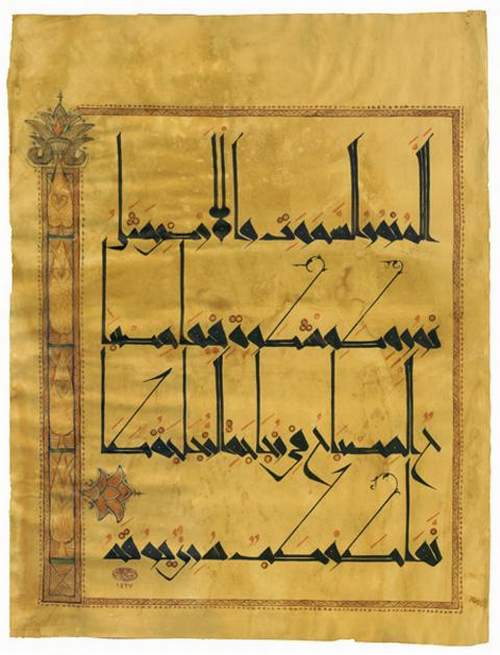 الله نور السموت والارض مثل
نوره كمشكوة فيها مصبا
ح المصباح في زجاجة الزجاجة كا
نها كوكب دري يوقد
١٤٢٧